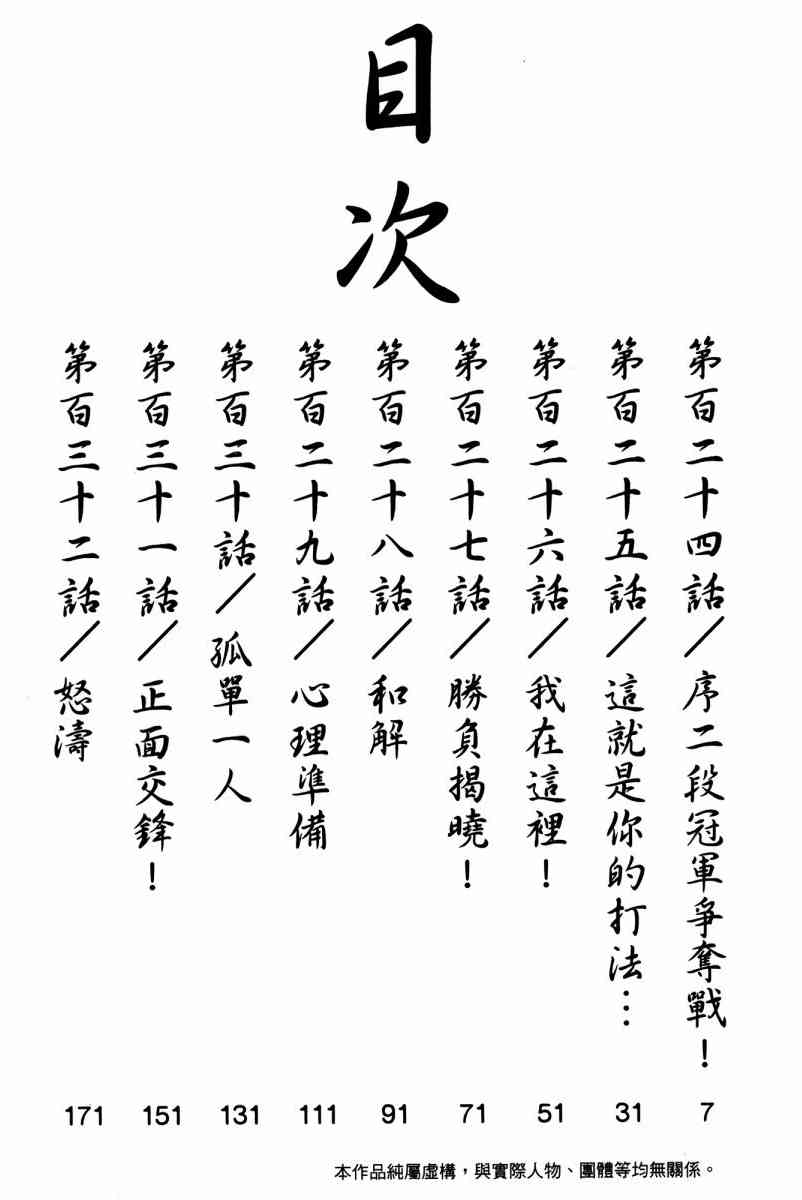 目次
第百二十四話／序二段冠軍爭奪戰！ 7
第百二十五話／這就是你的打法… 31
第百二十六話／我在這裡！ 51
第百二十七話／勝負揭曉！ 71
第百二十八話／和解 91
第百二十九話／心理準備 111
第百三十話／孤單一人 131
第百三十一話／正面交鋒！ 151
第百三十二話／怒濤 171
本作品純屬虛構，與實際人物、團體等均無關係。